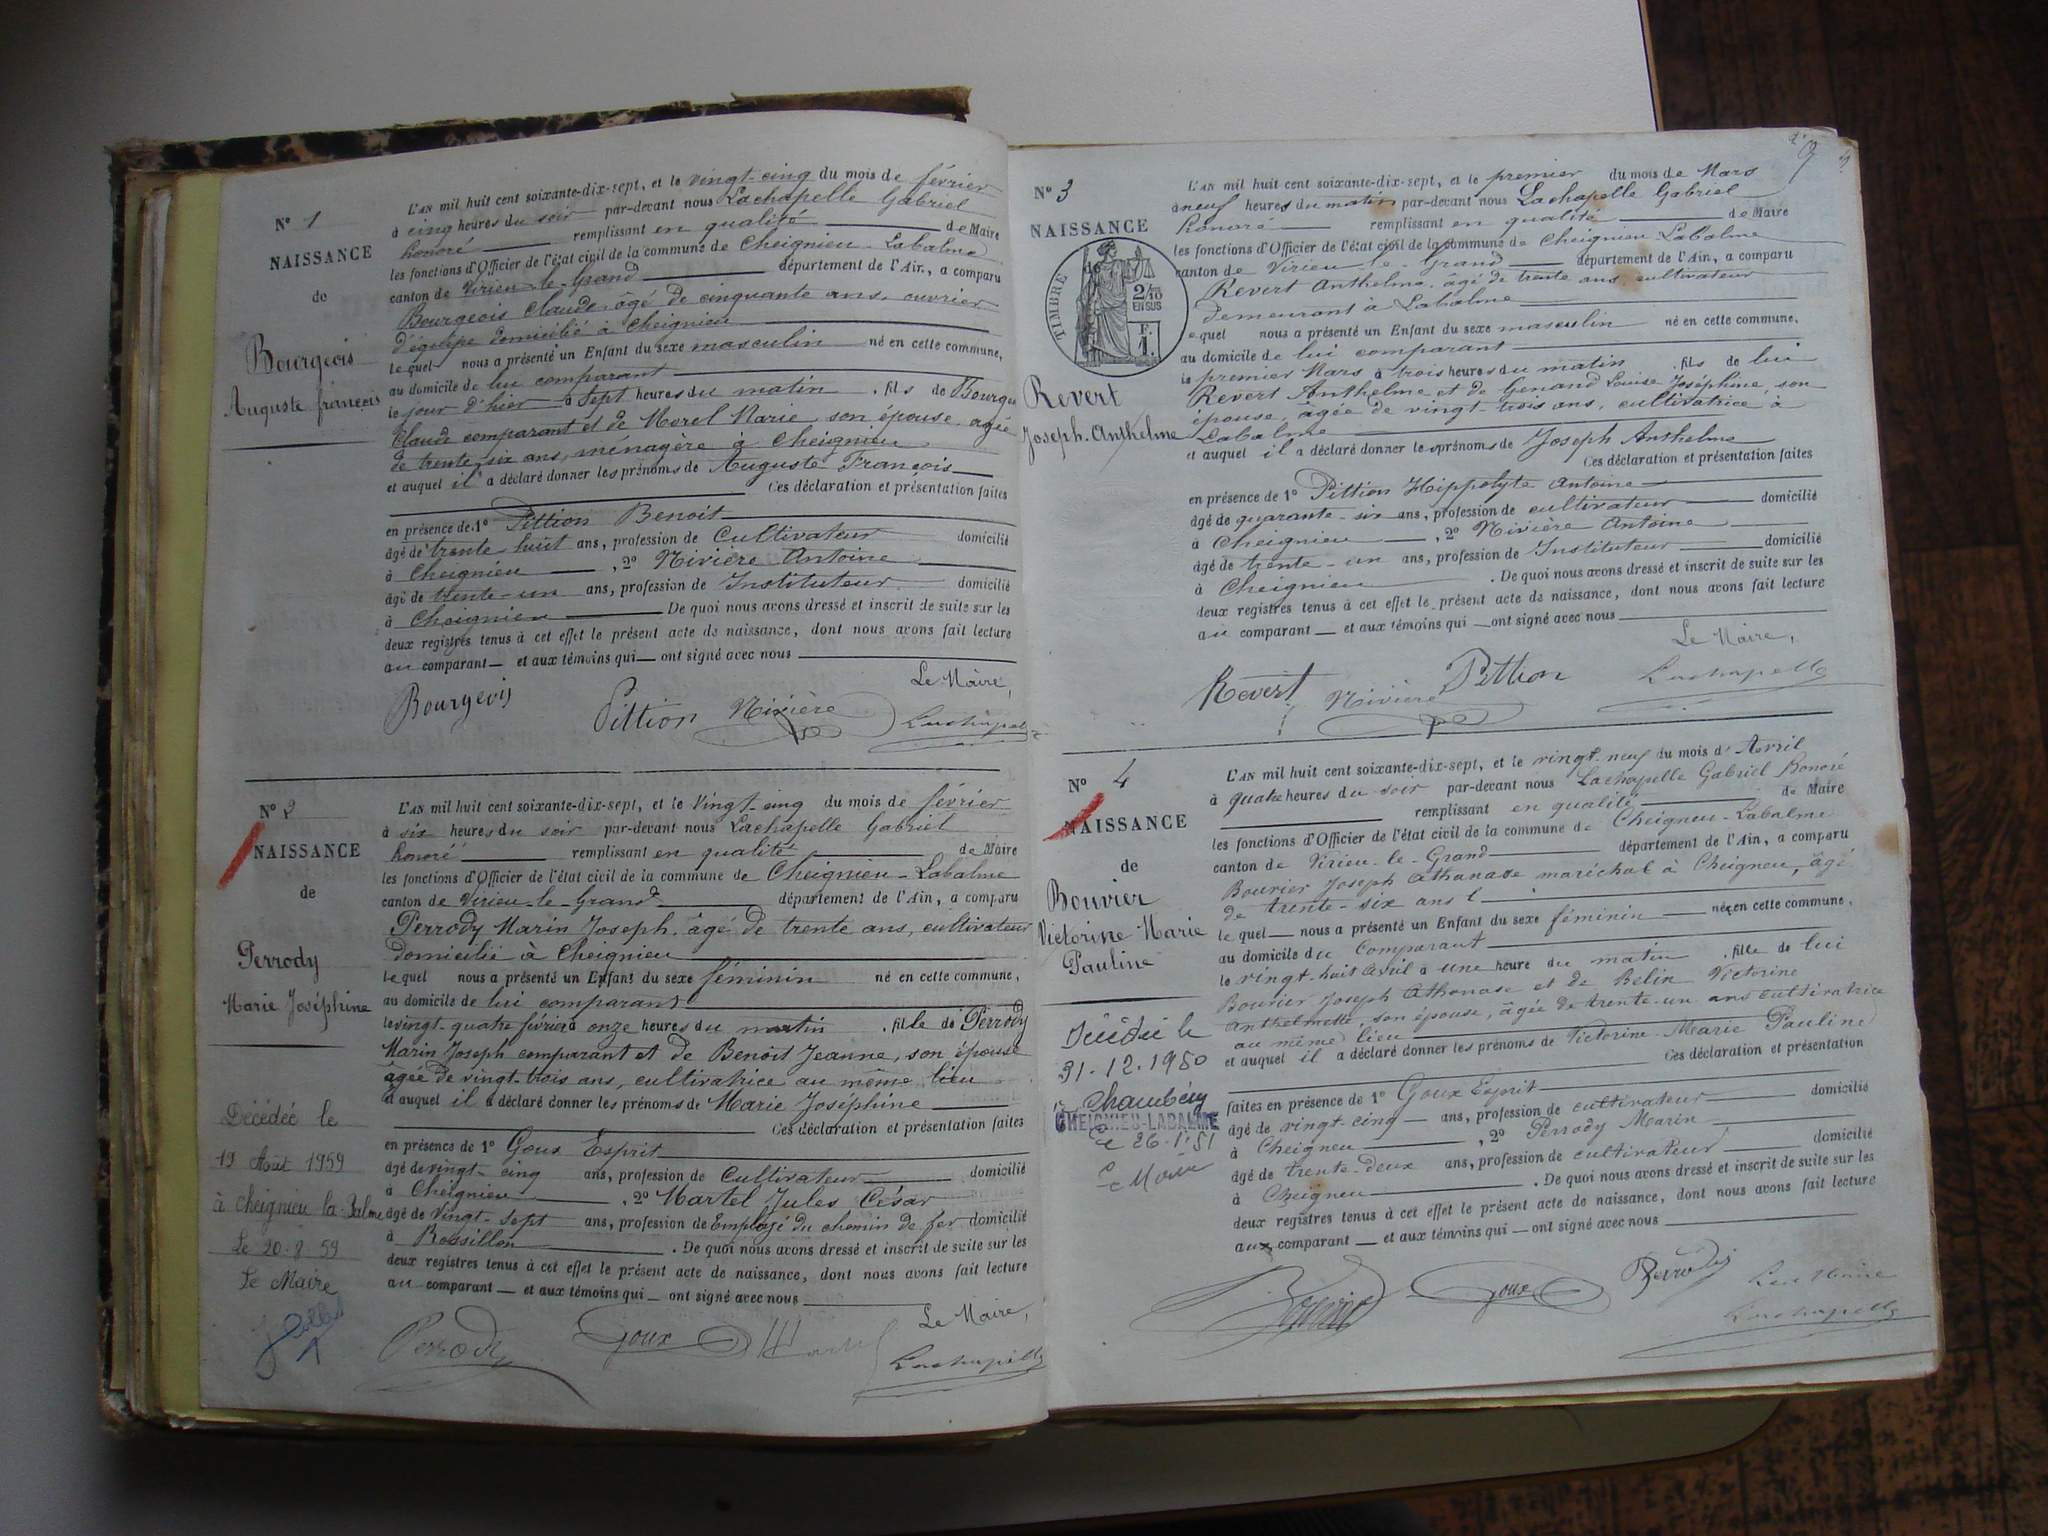 N° 1
NAISSANCE
de
Bourgeois
Auguste françois
L'AN mil huit cent soixante-dix-sept, et le vingt-cinq du mois de février
à cinq heures du soir par-devant nous Lachapelle Gabriel
honoré remplissant en qualité de Maire
les fonctions d'Officier de l'état civil de la commune de Cheignieu-Labalme
canton de Virieu-le-Grand département de l'Ain, a comparu
Bourgeois Claude, âgé de cinquante ans, ouvrier
d'équipe domicilié à Cheignieu
lequel nous a présenté un Enfant du sexe masculin né en cette commune,
au domicile de lui comparant
le jour d'hier à sept heures du matin, fils de Bourgeois
Claude comparant et de Morel Marie, son épouse âgée
de trente-six ans, ménagère à Cheignieu
et auquel il a déclaré donner les prénoms de Auguste François
Ces déclaration et présentation faites
en présence de 1° Pittion Benoit
âgé de trente huit ans, profession de Cultivateur domicilié
à Cheignieu, 2° Nivière Antoine
âgé de trente-un ans, profession de Instituteur domicilié
à Cheignieu De quoi nous avons dressé et inscrit de suite sur les
deux registres tenus à cet effet le présent acte de naissance, dont nous avons fait lecture
au comparant et aux témoins qui ont signé avec nous
Le Maire,
Bourgeois Pittion Nivière Lachapelle
N° 2
NAISSANCE
de
Perrody
Marie Joséphine
Décédée le
19 Août 1959
à Cheignieu la Balme
Le 20-8-59
Le Maire
L'AN mil huit cent soixante-dix-sept, et le vingt-cinq du mois de février
à six heures du soir par-devant nous Lachapelle Gabriel
honoré remplissant en qualité de Maire
les fonctions d'Officier de l'état civil de la commune de Cheignieu-Labalme
canton de Virieu-le-Grand département de l'Ain, a comparu
Perrody Marin Joseph, âgé de trente ans, cultivateur
domicilié à Cheignieu
lequel nous a présenté un Enfant du sexe féminin né en cette commune,
au domicile de lui comparant
le vingt-quatre février à onze heures du matin, fille de Perrody
Marin Joseph comparant et de Benoit Jeanne, son épouse
âgée de vingt-trois ans, cultivatrice au même lieu
et auquel il a déclaré donner les prénoms de Marie Joséphine
Ces déclaration et présentation faites
en présence de 1° Goux Esprit
âgé de vingt-cinq ans, profession de Cultivateur domicilié
à Cheignieu, 2° Martel Jules César
âgé de vingt-sept ans, profession de Employé du chemin de fer domicilié
à Rossillon. De quoi nous avons dressé et inscrit de suite sur les
deux registres tenus à cet effet le présent acte de naissance, dont nous avons fait lecture
au comparant et aux témoins qui ont signé avec nous
Le Maire,
Perrody Goux Martel Lachapelle
N° 3
NAISSANCE
TIMBRE
2/10
EN SUS
F.
1.
Revert
Joseph-Anthelme
L'AN mil huit cent soixante-dix-sept, et le premier du mois de Mars
à neuf heures du matin par-devant nous Lachapelle Gabriel
honoré remplissant en qualité de Maire
les fonctions d'Officier de l'état civil de la commune de Cheignieu-Labalme
canton de Virieu-le-Grand département de l'Ain, a comparu
Revert Anthelme, âgé de trente ans, cultivateur
demeurant à Labalme
lequel nous a présenté un Enfant du sexe masculin né en cette commune,
au domicile de lui comparant
le premier Mars à trois heures du matin, fils de lui
Revert Anthelme et de Genand Louise Joséphine, son
épouse, âgée de vingt-trois ans, cultivatrice à
Labalme
et auquel il a déclaré donner les prénoms de Joseph Anthelme
Ces déclaration et présentation faites
en présence de 1° Pittion Hippolyte Antoine
âgé de quarante-six ans, profession de cultivateur domicilié
à Cheignieu, 2° Nivière Antoine
âgé de trente-un ans, profession de Instituteur domicilié
à Cheignieu. De quoi nous avons dressé et inscrit de suite sur les
deux registres tenus à cet effet le présent acte de naissance, dont nous avons fait lecture
au comparant et aux témoins qui ont signé avec nous
Le Maire,
Revert Nivière Pittion Lachapelle
N° 4
NAISSANCE
de
Bouvier
Victorine Marie
Pauline
Décédée le
31.12.1950
Chambéry
CHEIGNIEU-LABALME
Le 26.1.51
Le Maire
L'AN mil huit cent soixante-dix-sept, et le vingt-neuf du mois d'Avril
à quatre heures du soir par-devant nous Lachapelle Gabriel Honoré
remplissant en qualité de Maire
les fonctions d'Officier de l'état civil de la commune de Cheigneu-Labalme
canton de Virieu-le-Grand département de l'Ain, a comparu
Bouvier Joseph Athanase maréchal à Cheigneu, âgé
de trente-six ans
lequel nous a présenté un Enfant du sexe féminin née en cette commune,
au domicile du Comparant
le vingt-huit Avril à une heure du matin, fille de lui
Bouvier Joseph Athanase et de Belin Victorine
Anthelmette, son épouse, âgée de trente-un ans cultivatrice
au même lieu
et auquel il a déclaré donner les prénoms de Victorine-Marie Pauline
Ces déclaration et présentation
faites en présence de 1° Goux Esprit
âgé de vingt-cinq ans, profession de cultivateur domicilié
à Cheigneu, 2° Perrody Marin
âgé de trente-deux ans, profession de cultivateur domicilié
à Cheigneu. De quoi nous avons dressé et inscrit de suite sur les
deux registres tenus à cet effet le présent acte de naissance, dont nous avons fait lecture
aux comparant et aux témoins qui ont signé avec nous
Bouvier Goux Perrody Le Maire
Lachapelle